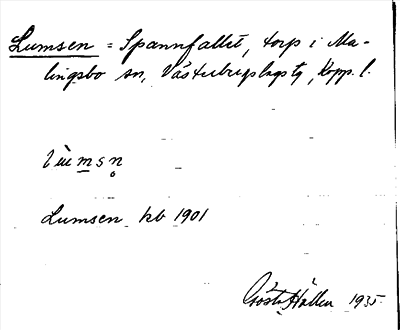 Lumsen = Spannfallet, torp i Ma-
lingsbo sn, Västerbergslags tg, Kopp. l.
Lumsen kb 1901
Gösta Hallen 1935.